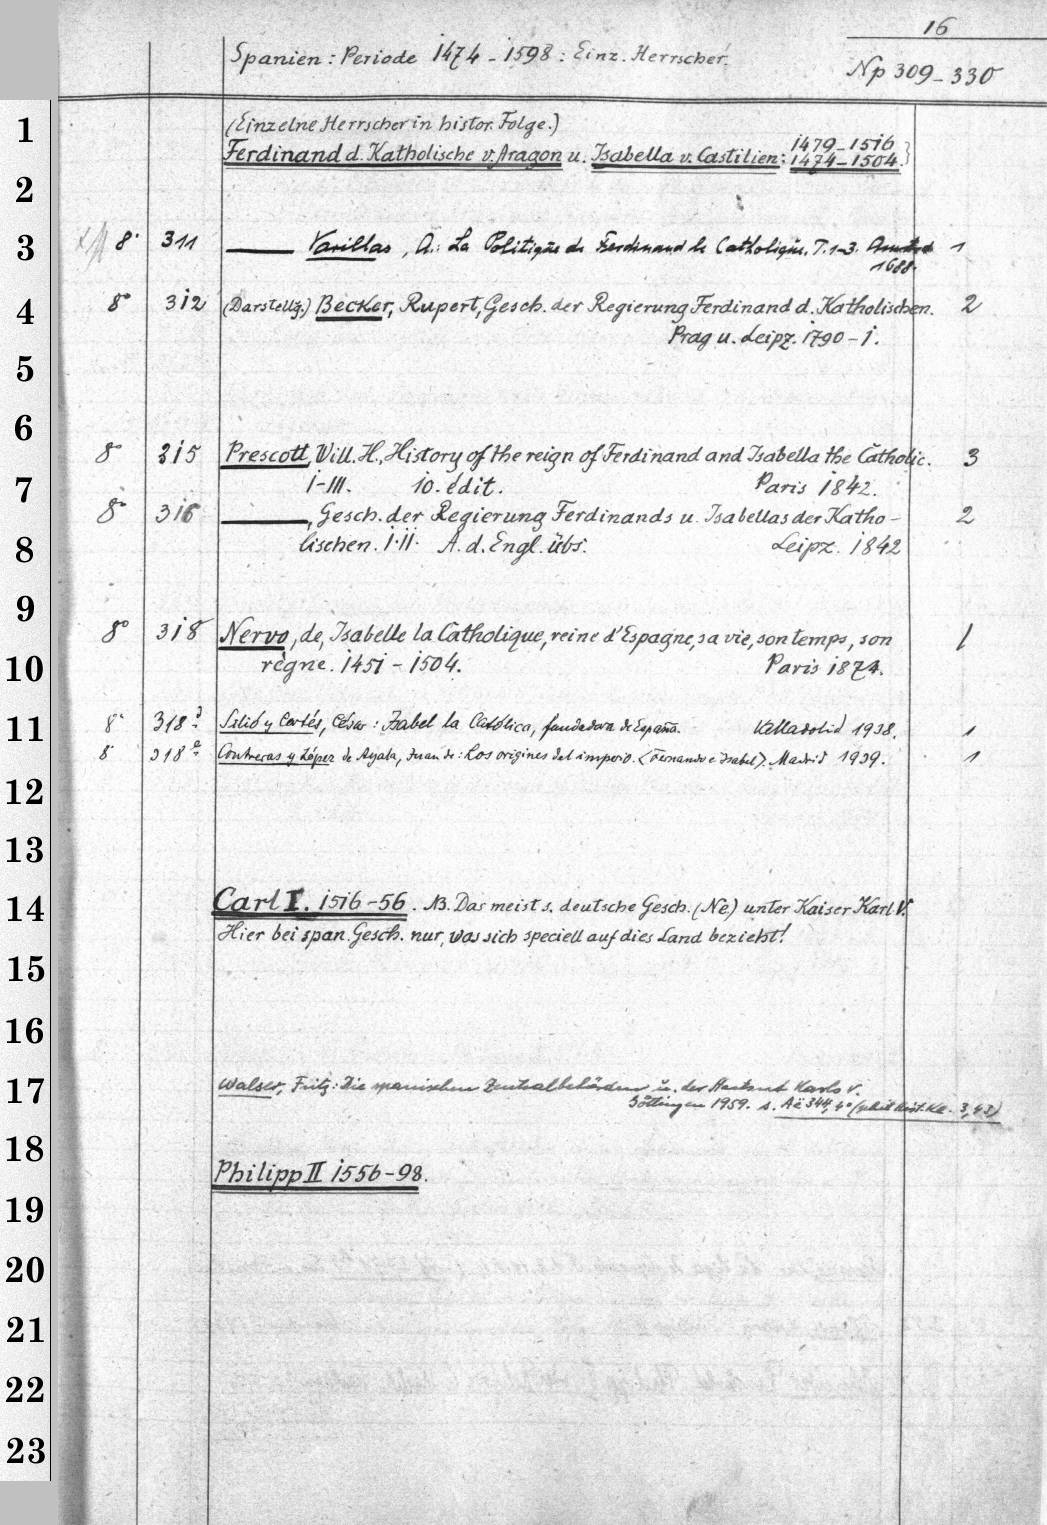 16
Spanien: Periode 1474-1598: Einz. Herrscher.
Np 309-330
1
(Einzelne Herrscher in histor. Folge.)
Ferdinand d. Katholische v. Aragon u. Isabella v. Castilien: 1479-1516
1474-1504.}
2
3 8° 311 ——— Varillas, A.: La Politique de Ferdinand le Catholique. T. 1-3. Amsterd 1
1688.
4 8° 312 (Darstellg.) Becker, Rupert, Gesch. der Regierung Ferdinand d. Katholischen. 2
Prag u. Leipz. 1790-1.
5
6
8° 315 Prescott, Will. H., History of the reign of Ferdinand and Isabella the Catholic. 3
7 I-III. 10. édit. Paris 1842.
8° 316 ———, Gesch. der Regierung Ferdinands u. Isabellas der Katho- 2
8 lischen. I-II. A. d. Engl. übs. Leipz. 1842
9
8° 318 Nervo, de, Isabelle la Catholique, reine d'Espagne, sa vie, son temps, son 1
10 règne. 1451-1504. Paris 1874.
11 8° 318 d Silió y Cortés, César: Isabel la Católica, fundadora de España. Valladolid 1938. 1
8° 318 e Contreras y López de Ayala, Juan de: Los origines del imperio. <Fernando e Isabel>. Madrid 1939. 1
12
13
14 Carl I. 1516-56. NB. Das meist s. deutsche Gesch. (Ne) unter Kaiser Karl V.
Hier bei span. Gesch. nur, was sich speciell auf dies Land bezieht!
15
16
17 Walser, Fritz: Die spanischen Zentralbehörden u. der Staatsrat Karls V.
Göttingen 1959. s. Aë 344, 4° (phil. hist. Kl. 3,43)
18
Philipp II 1556-98.
19
20
21
22
23